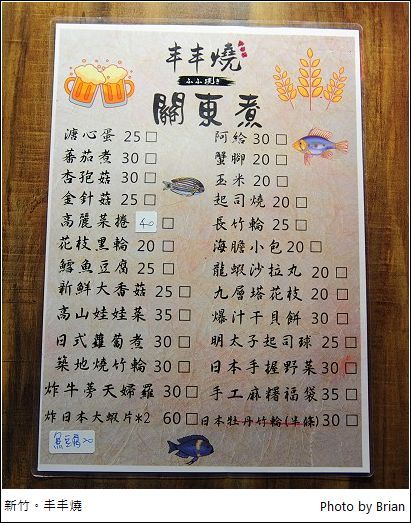 丰丰燒
ふふ焼き
關東煮
溏心蛋 25 □
蕃茄煮 30 □
杏孢菇 30 □
金針菇 25 □
高麗菜捲 40 □
花枝黑輪 20 □
鱈魚豆腐 25 □
新鮮大香菇 25 □
高山娃娃菜 35 □
日式蘿蔔煮 30 □
築地燒竹輪 30 □
炸牛蒡天婦羅 30 □
炸日本大蝦片*2 60 □
魚豆腐 20
阿給 30 □
蟹腳 20 □
玉米 20 □
起司燒 20 □
長竹輪 25 □
海膽小包 20 □
龍蝦沙拉丸 20 □
九層塔花枝 20 □
爆汁干貝餅 30 □
明太子起司球 25 □
日本手握野菜 30 □
手工麻糬福袋 35 □
日本牡丹竹輪(半條) 30 □
新竹。丰丰燒
Photo by Brian